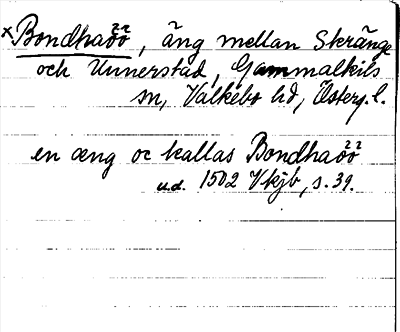 ×Bondhaöö, äng mellan Skränge
och Unnerstad, Gammalkils
sn, Valkebo hd, Österg. l.
en œng oc kallas Bondhaöö
u.d. 1502 Vkjb, s. 39.